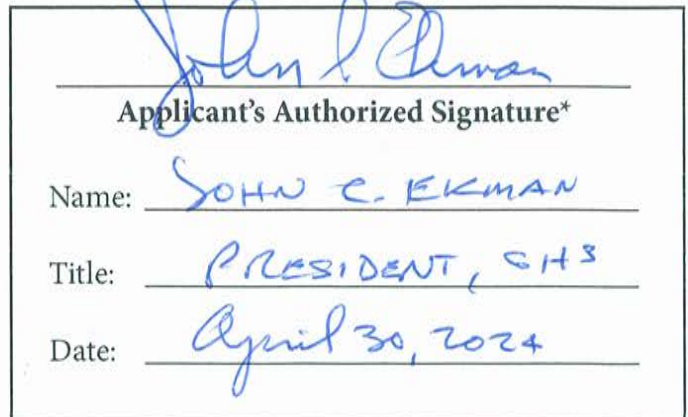 John C Ekman
Applicant's Authorized Signature*
Name: JOHN C. EKMAN
Title: PRESIDENT, GHS
Date: April 30, 2024